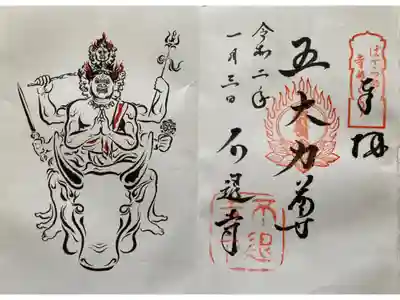 奉拝
五大力尊
令和二年
一月三日
不退寺